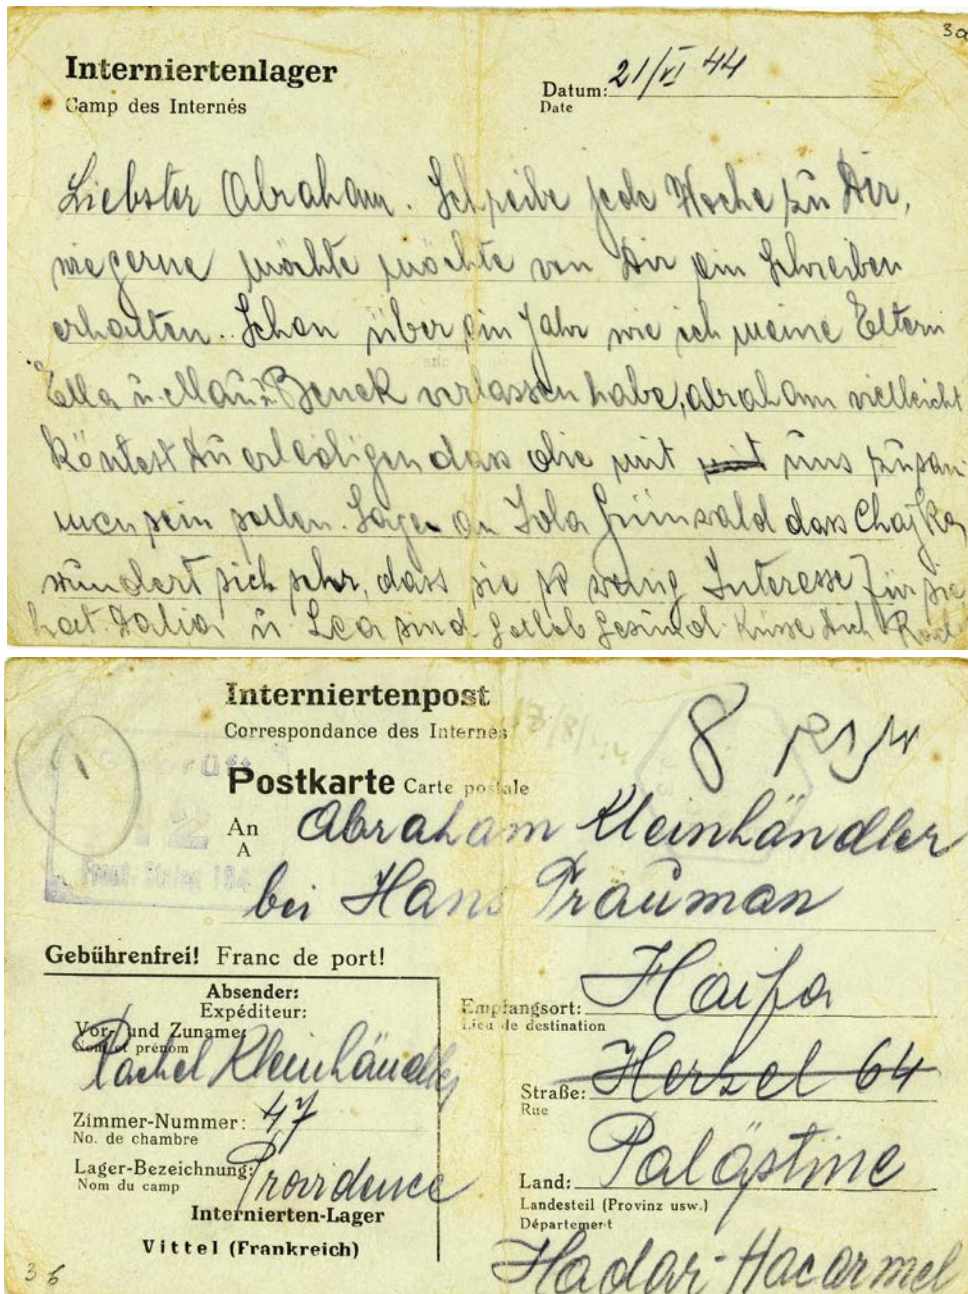 3a
Interniertenlager
Camp des Internés
Datum: 21/VI 44
Date
Liebster Abraham. Schreibe jede Woche zu Dir,
wie gerne möchte möchte von Dir ein Schreiben
erhalten. Schon über ein Jahr wie ich meine Eltern
Ella u. Benek verlassen habe, abraham vielleicht
köntest Du erledigen dass die mit mit uns zusam
men sein sollen. Sage an Lola Grünwald dass Chajka
wundert sich sehr, dass sie so wenig Interesse für sie
hat. Dalia u Lea sind gottlob gesund. Küsse Dich
Interniertenpost
Correspondance des Internés
8
Postkarte Carte postale
Geprüft
An Abraham Kleinhändler
A
bei Hans Trauman
Gebührenfrei! Franc de port!
Absender:
Expéditeur:
Vor- und Zuname:
Nom et prénom
Rachel Kleinhändler
Zimmer-Nummer: 47
No. de chambre
Lager-Bezeichnung: Providence
Nom du camp
Internierten-Lager
Vittel (Frankreich)
Empfangsort: Haifa
Lieu de destination
Straße: Herzel 64
Rue
Land: Palästine
Landesteil (Provinz usw.)
Département
Hadar-Hacarmel
3b